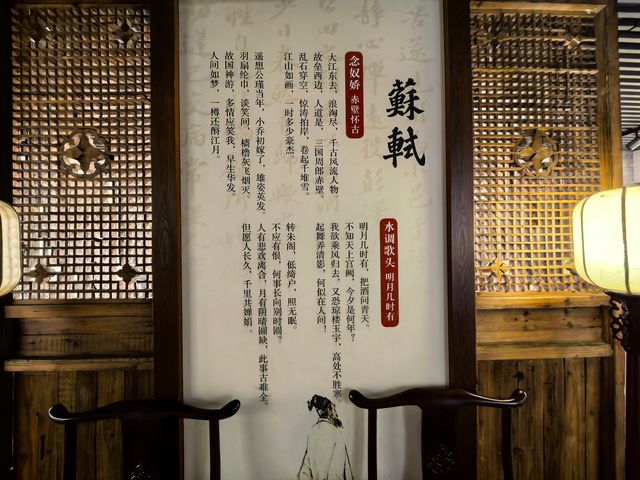 蘇軾
念奴娇 赤壁怀古
大江东去，浪淘尽，千古风流人物。
故垒西边，人道是，三国周郎赤壁。
乱石穿空，惊涛拍岸，卷起千堆雪。
江山如画，一时多少豪杰。
遥想公瑾当年，小乔初嫁了，雄姿英发。
羽扇纶巾，谈笑间，樯橹灰飞烟灭。
故国神游，多情应笑我，早生华发。
人间如梦，一樽还酹江月。
水调歌头 明月几时有
明月几时有，把酒问青天。
不知天上宫阙，今夕是何年？
我欲乘风归去，又恐琼楼玉宇，高处不胜寒。
起舞弄清影，何似在人间！
转朱阁，低绮户，照无眠。
不应有恨，何事长向别时圆？
人有悲欢离合，月有阴晴圆缺，此事古难全。
但愿人长久，千里共婵娟。